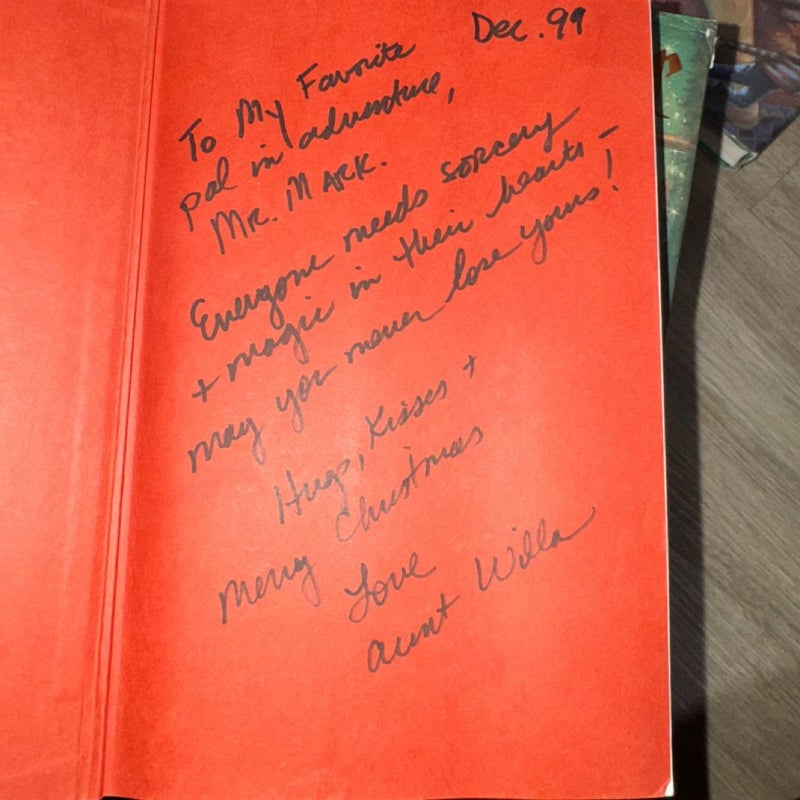 Dec. 99
To My Favorite
pal in adventure,
Mr. MARK.
Everyone needs sorcery
+ magic in their hearts –
may you never lose yours!
Hugs, Kisses +
Merry Christmas
Love
Aunt Willa